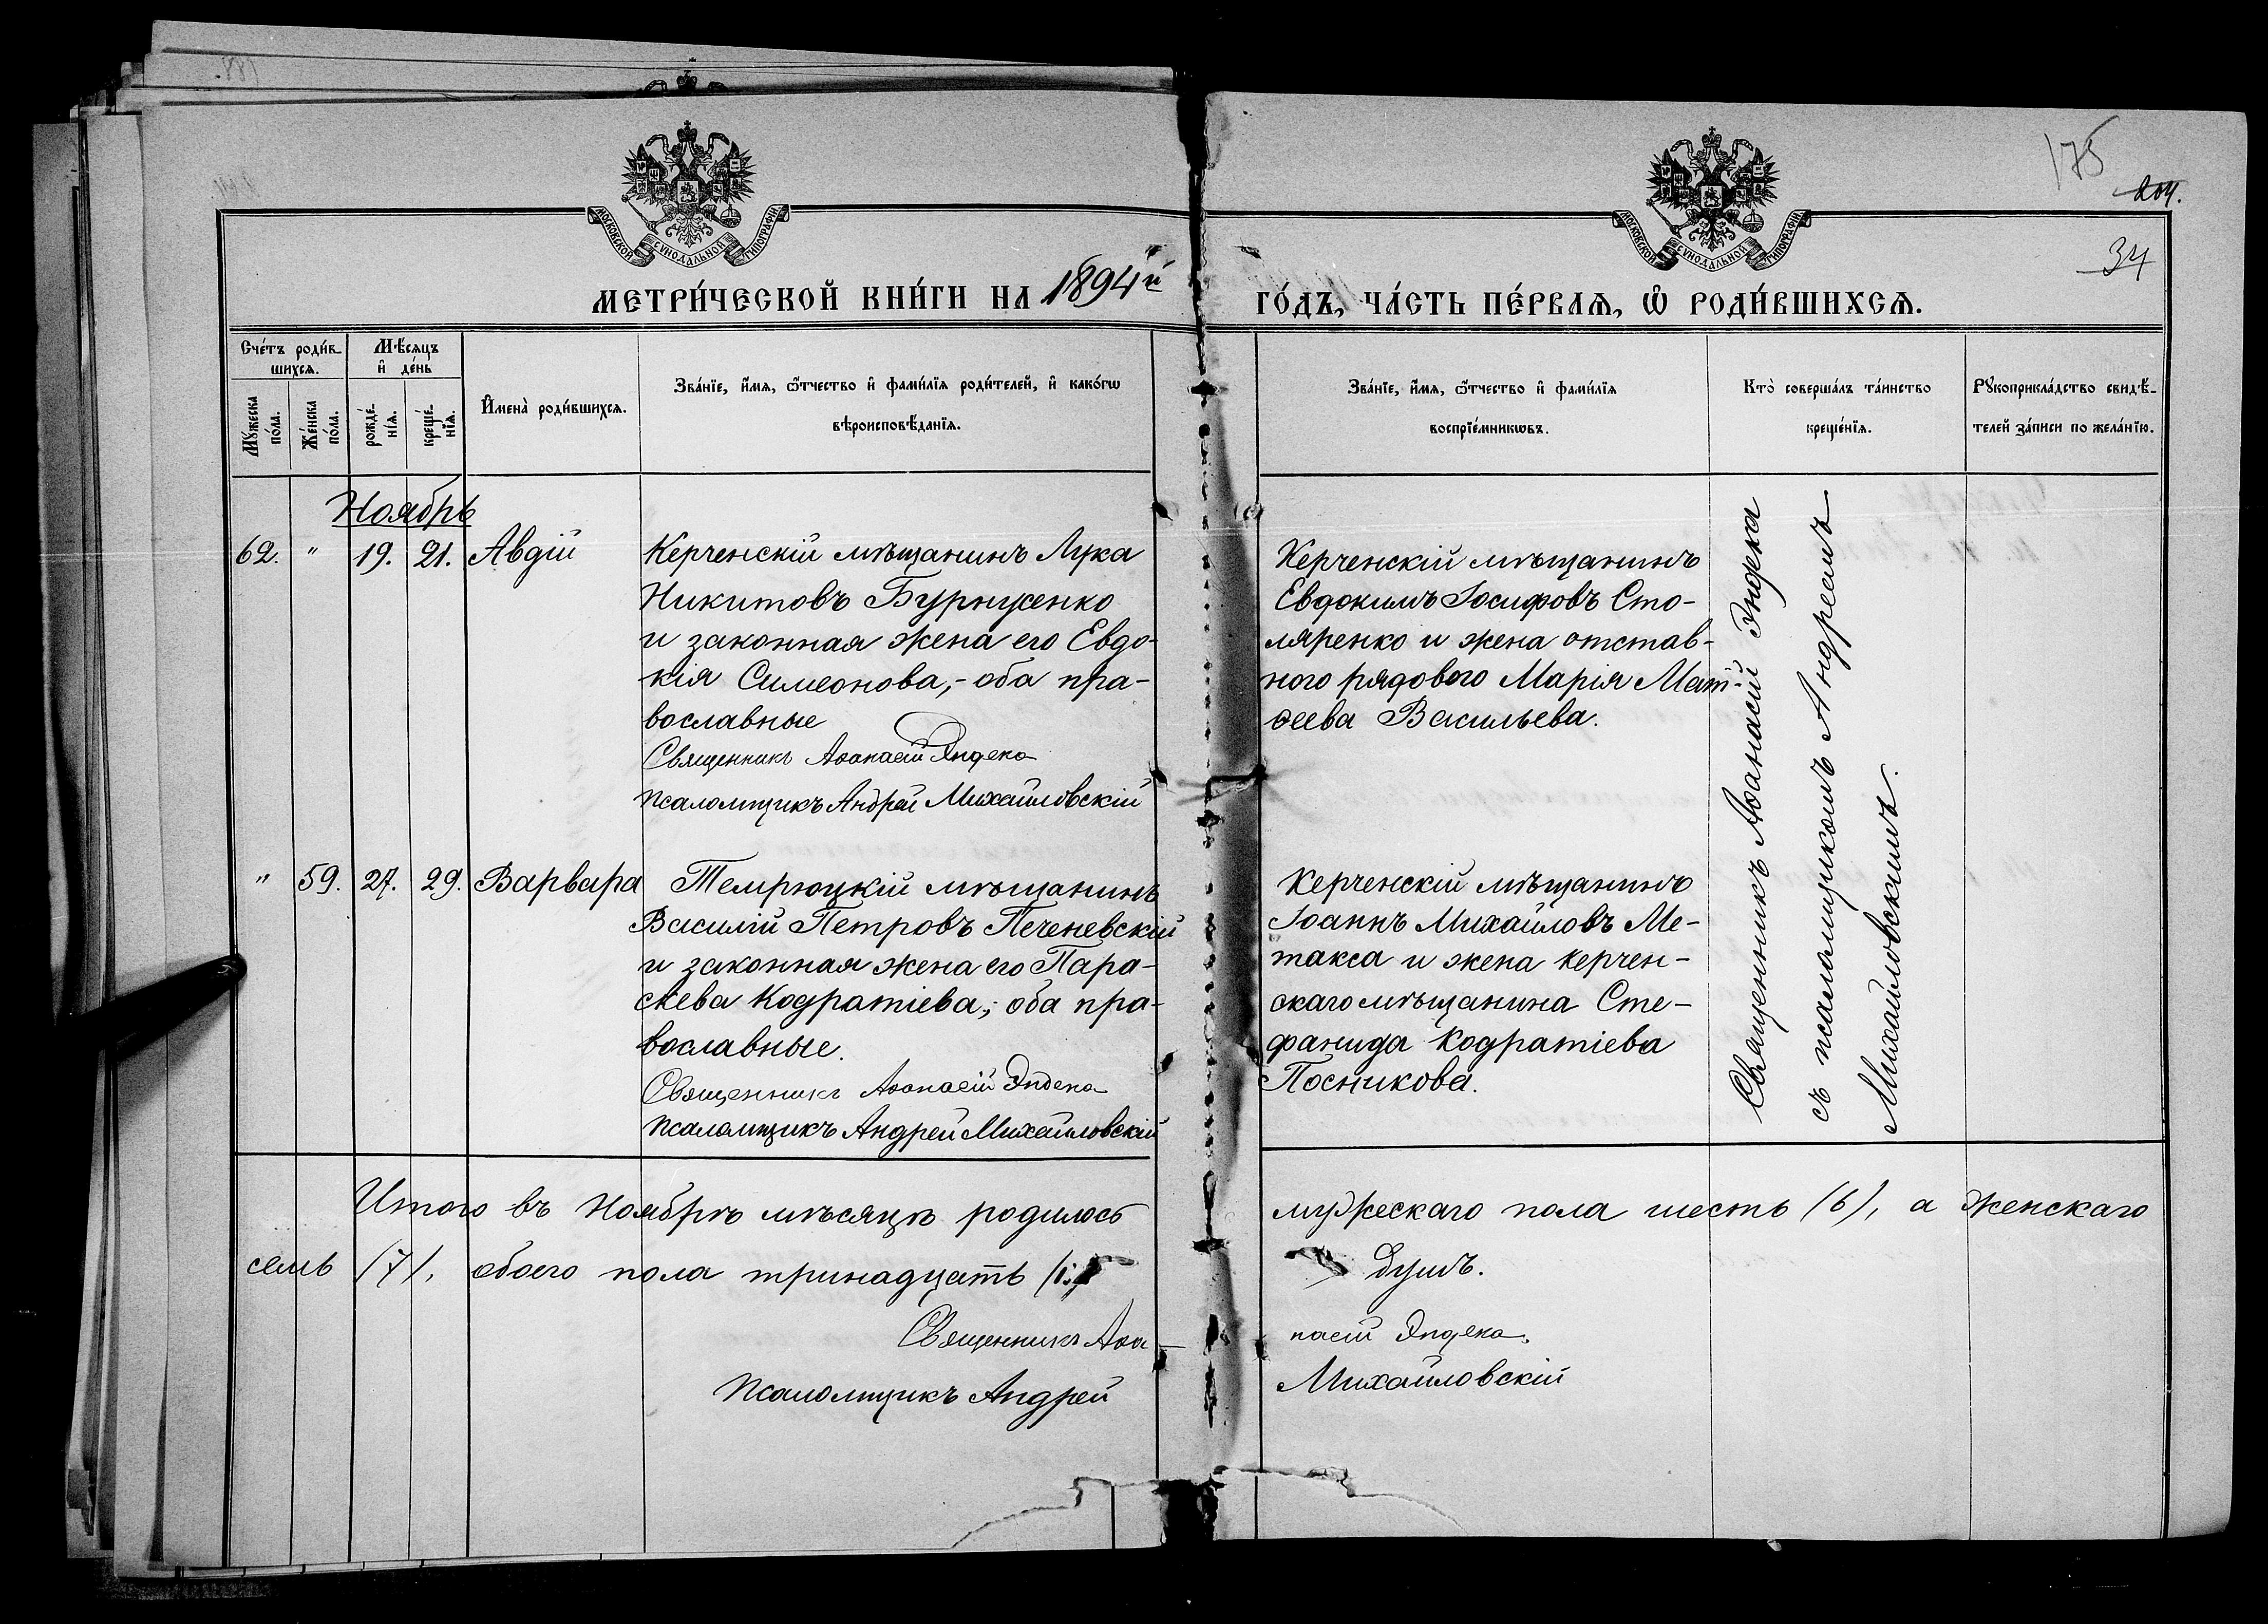 175
204.
34
МОСКОВСКОЙ СѴНОДАЛЬНОЙ ТИПОГРАФІИ
МОСКОВСКОЙ СѴНОДАЛЬНОЙ ТИПОГРАФІИ
МЕТРИ́ЧЕСКОЙ КНИ́ГИ НА 1894й
ГО́ДЪ, ЧА́СТЬ ПЕ́РВАѦ, Ѡ҆ РОДИ́ВШИХСѦ.
Сче́тъ роди́в-
шихсѧ.
Мѣ́сѧцъ
и҆ де́нь
Мꙋ́жеска
по́ла.
Же́нска
по́ла.
рожде́-
нїѧ.
креще́-
нїѧ.
И҆мена̀ роди́вшихсѧ.
Зва́нїе, и҆́мѧ, ѻ҆́тчество и҆ фами́лїѧ роди́телей, и҆ како́гѡ
вѣроисповѣ́данїѧ.
Зва́нїе, и҆́мѧ, ѻ҆́тчество и҆ фами́лїѧ
воспрїе́мникѡвъ.
Кто̀ соверша́лъ та́инство
креще́нїѧ.
Рꙋкоприкла́дство свидѣ́-
телей за́писи по жела́нїю.
Ноябрь
62. " 19. 21. Авдій
Керченскій мѣщанинъ Лука
Никитовъ Бурнусенко
и законная жена его Евдо-
кія Симеонова,- оба пра-
вославные
Священникъ Аѳанасій Эндека
Псаломщикъ Андрей Михайловскій
Керченскій мѣщанинъ
Евдокимъ Іосифовъ Сто-
ляренко и жена отстав-
ного рядового Марія Мат-
ѳеева Васильева.
Священникъ Аѳанасій Эндека
съ псаломщикомъ Андреемъ
Михайловскимъ.
" 59. 27. 29. Варвара
Темрюцкій мѣщанинъ
Василій Петровъ Печеневскій
и законная жена его Пара-
скева Кодратіева,- оба пра-
вославные.
Священникъ Аѳанасій Эндека
Псаломщикъ Андрей Михайловскій
Керченскій мѣщанинъ
Іоаннъ Михайловъ Ме-
такса и жена керчен-
скаго мѣщанина Сте-
фанида Кодратіева
Посникова.
Итого въ Ноябрѣ мѣсяцѣ родилось мужескаго пола шесть (6), а женскаго
семь (7), обоего пола тринадцать душъ.
Священникъ Аѳа-насій Эндека.
Псаломщикъ Андрей Михайловскій